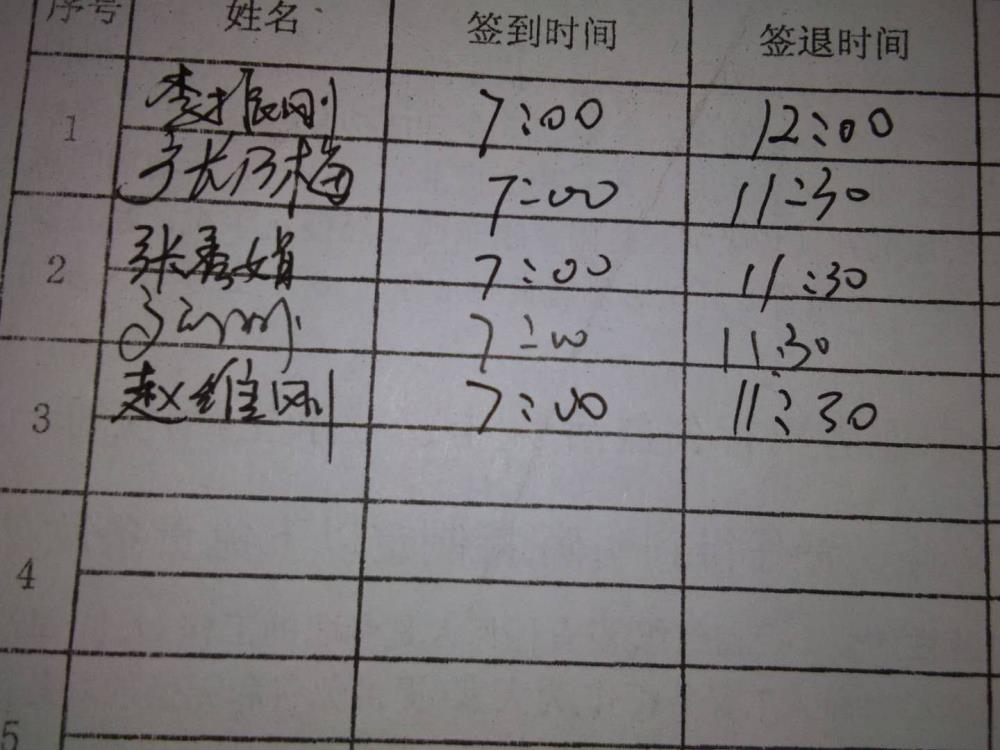 序号 姓名 签到时间 签退时间
1 李振刚 7:00 12:00
张乃梅 7:00 11:30
2 张秀娟 7:00 11:30
7:00 11:30
3 赵维刚 7:00 11:30
4
5